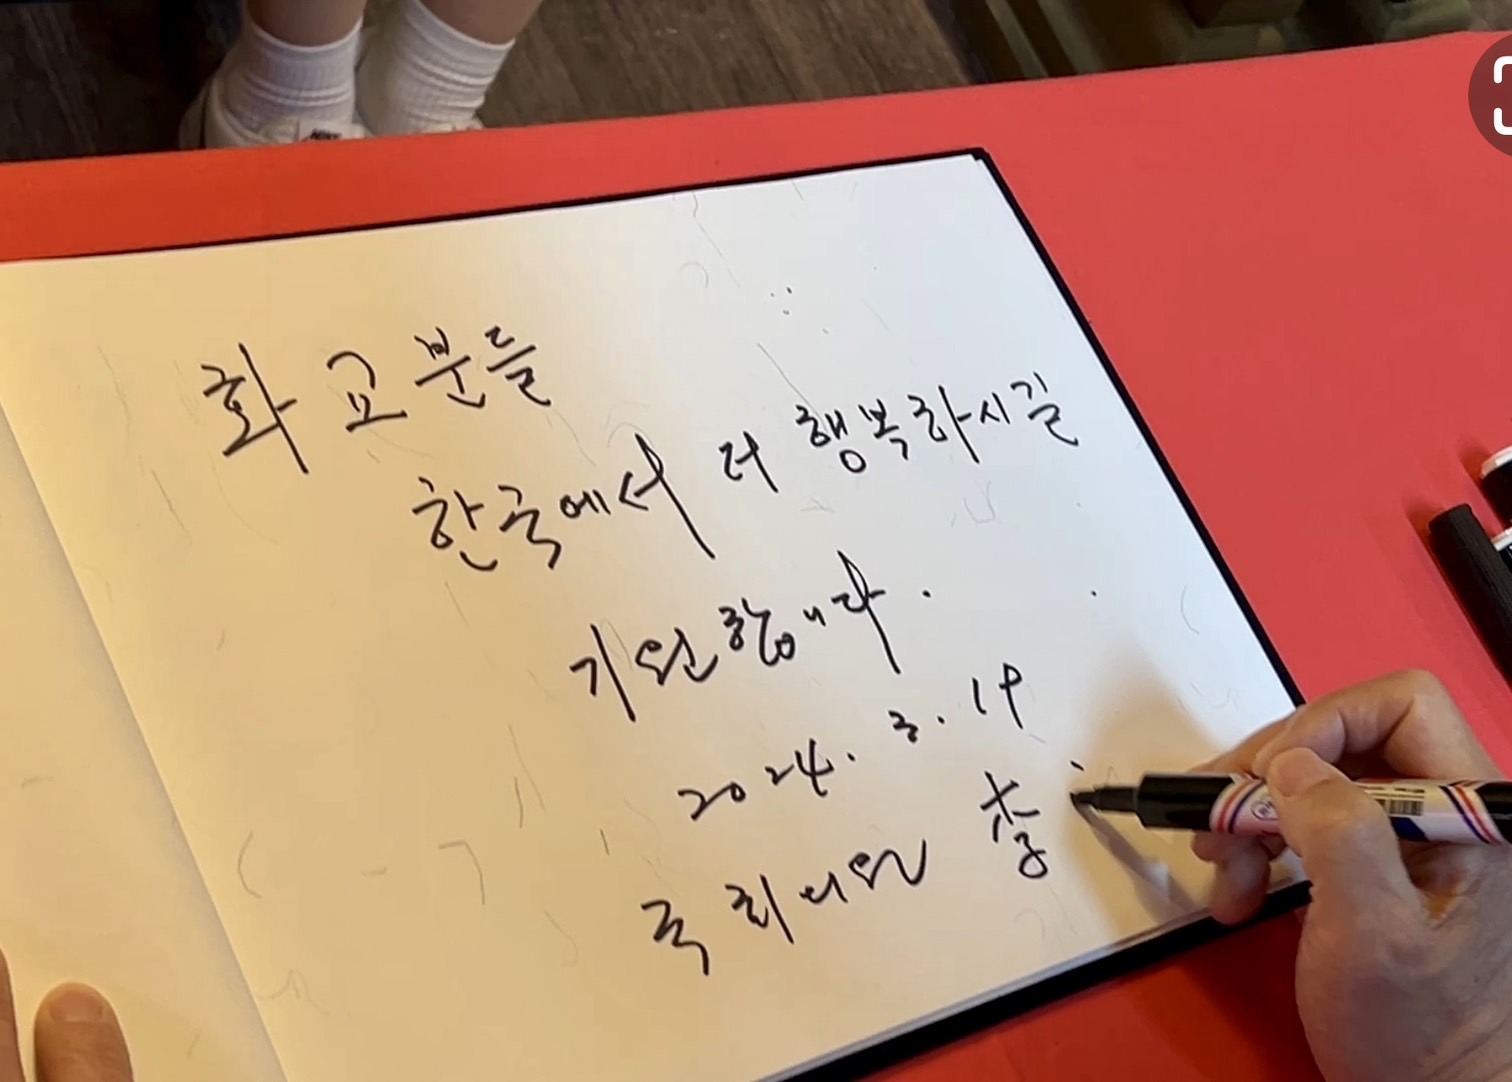 화교분들
한국에서 더 행복하시길
기원합니다.
2024. 3. 19
국회의원 李